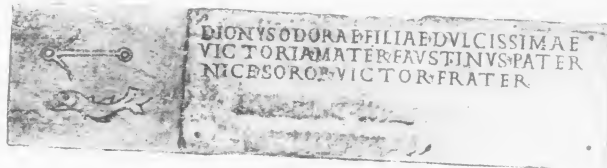 DIONYSODORAE·FILIAE·DVLCISSIMAE
VICTORIA·MATER·FAVSTINVS·PATER
NICE·SOROR·VICTOR·FRATER